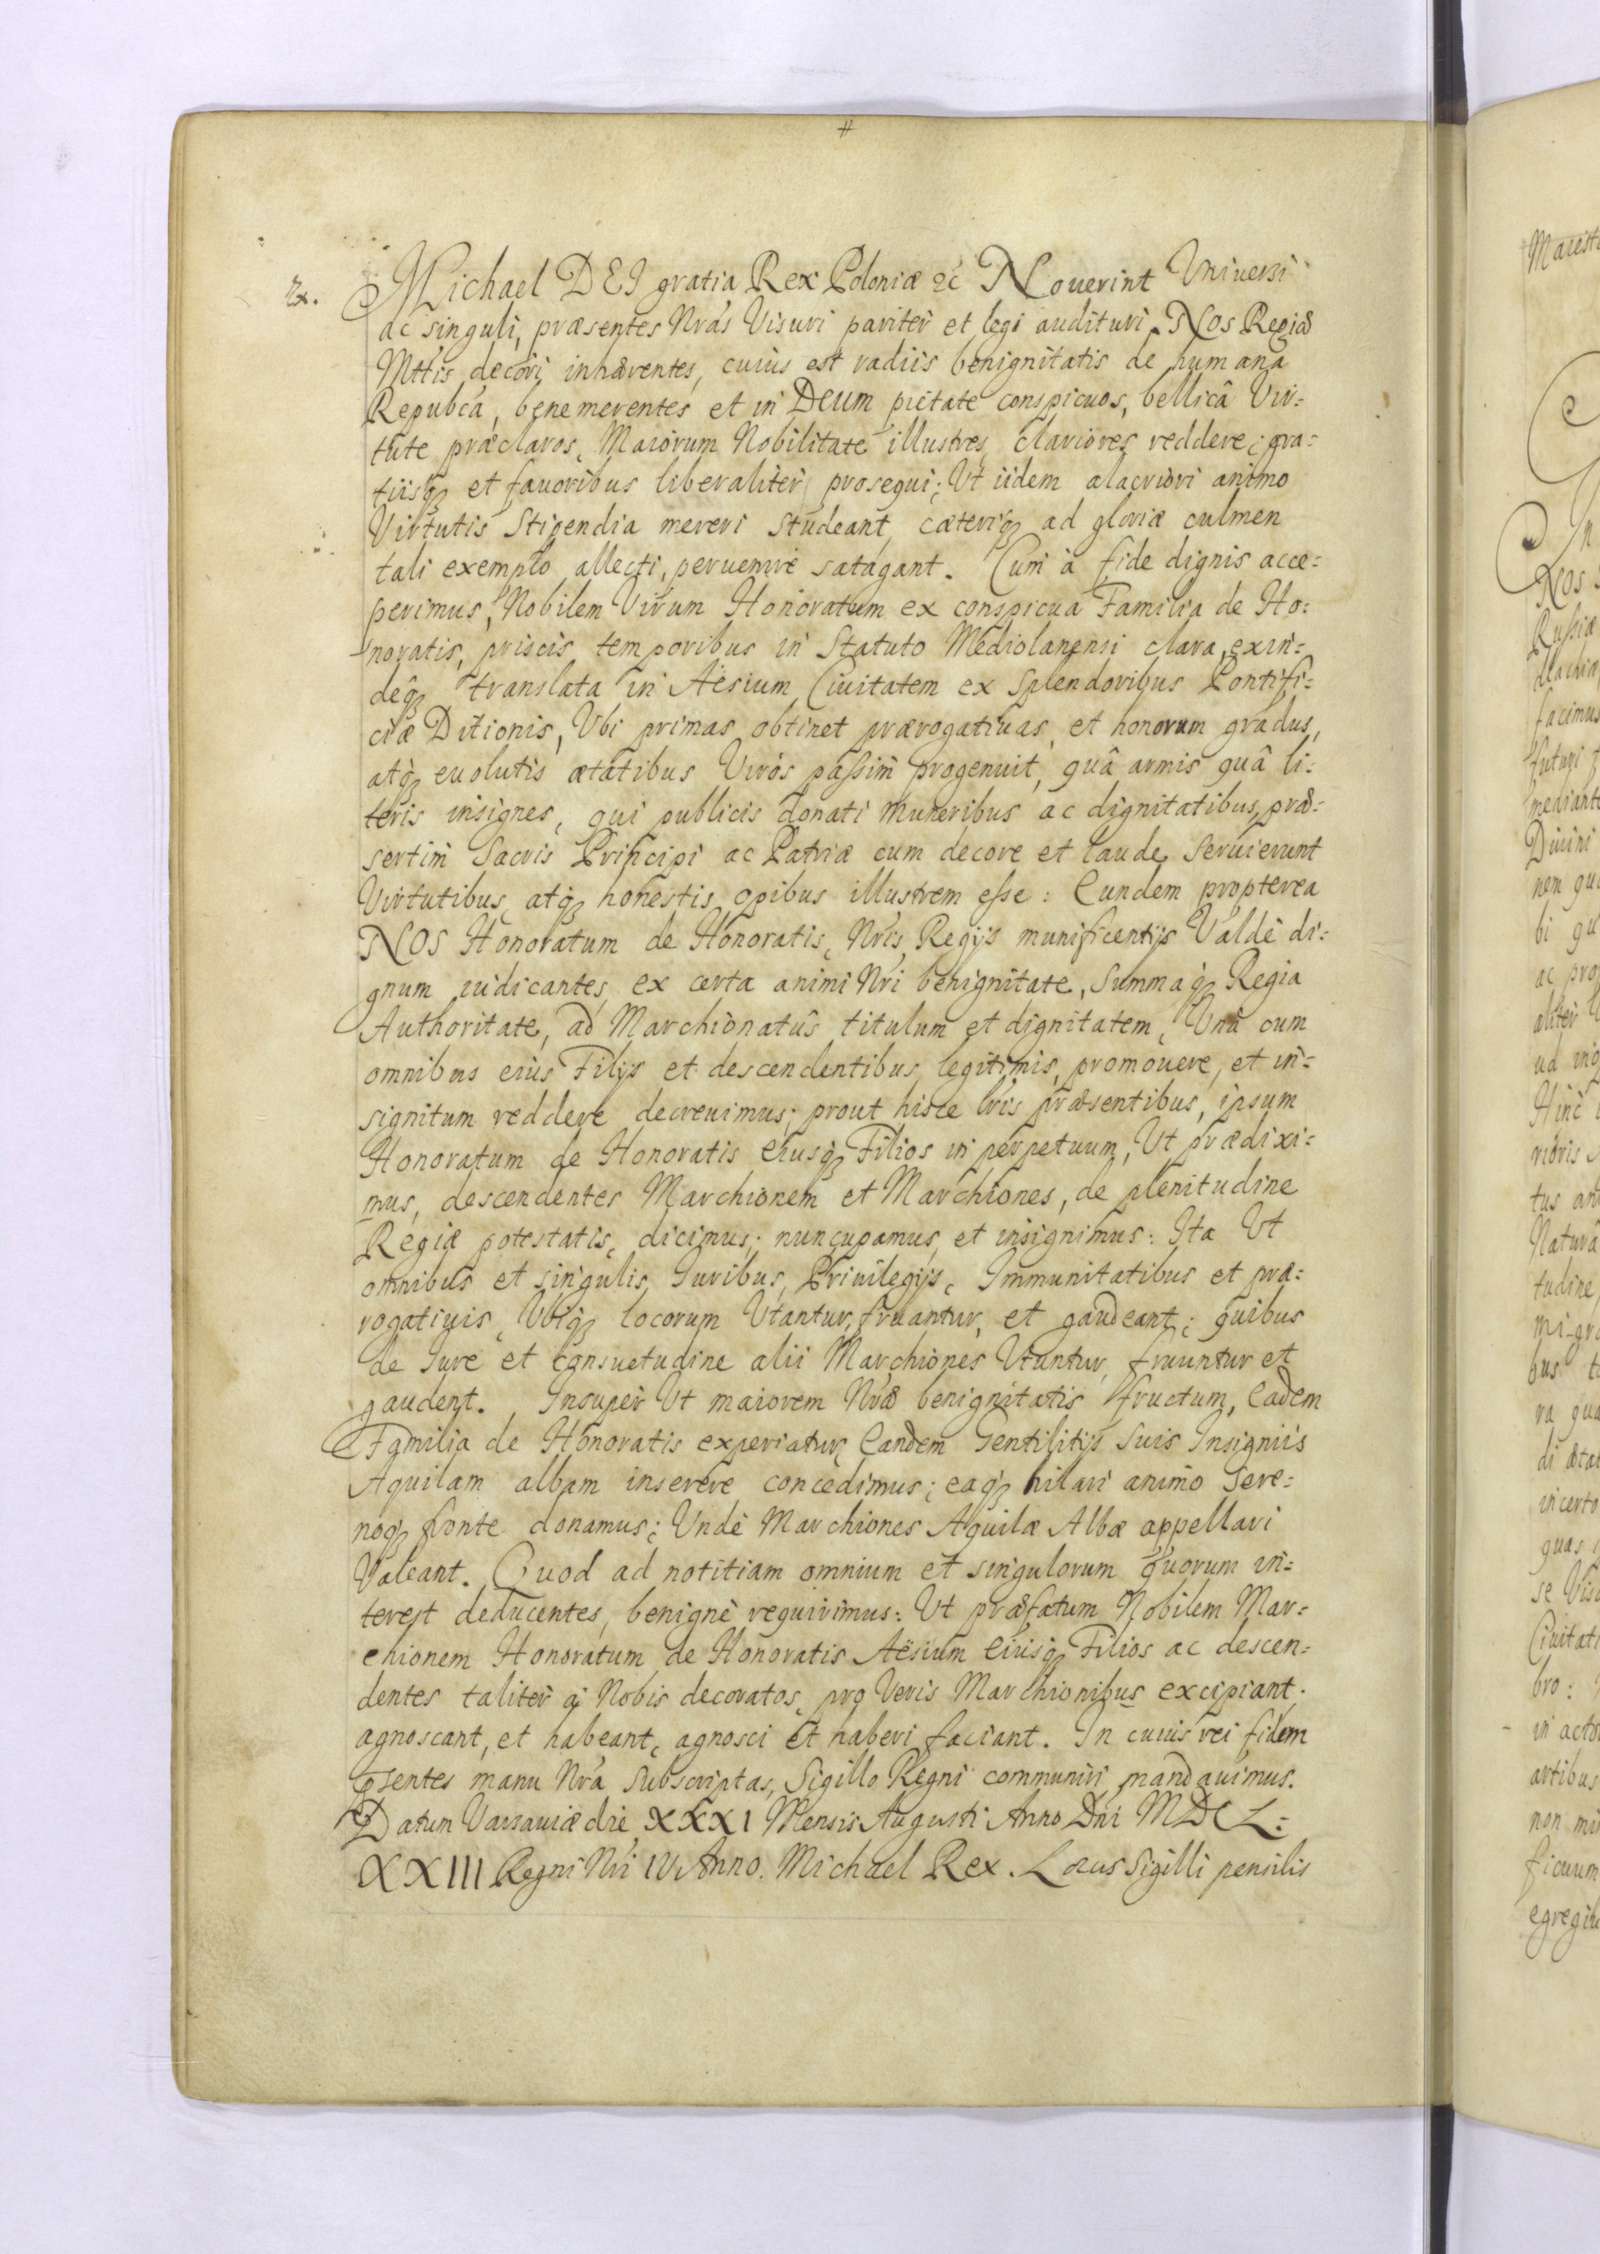 #
Michael DEI gratia Rex Poloniæ &c Nouerint Vniuersi
ac singuli, præsentes Nrás Visuri pariter et legi audituri. NOS Regiæ
Mttis decori inhærentes, cuius est radiis benignitatis de humana
Republcá, bene merentes et in DEUM pietate conspicuos, bellicâ Vir=
tute præclaros, Maiorum Nobilitate illustres, clariores reddere; gra=
tiisq3 et fauoribus liberaliter prosequi; Vt iidem alacriori animo
Virtutis Stipendia mereri studeant, cæteriq3 ad gloriæ culmen
tali exemplo allecti, peruenire satagant. Cum à fide dignis acce=
perimus, Nobilem Virum Honoratum ex conspicua Familia de Ho=
noratis, priscis temporibus in Statuto Mediolanensi clara, exin=
deq3 translata in Aësium Ciuitatem ex Splendoribus Pontifi=
ciæ Ditionis, Vbi primas obtinet prærogatiuas, et honorum gradus,
atq3 euolutis ætatibus Viros passim progenuit, quâ armis quâ li=
teris insignes, qui publicis donati muneribus ac dignitatibus, præ=
sertim Sacris Principi ac Patriæ cum decore et laude Seruierunt
Virtutibus, atq3 honestis opibus illustrem esse: Eundem propterea
NOS Honoratum de Honoratis, Nris Regijs munificentijs Valdè di=
gnum iudicantes, ex certa animi Nri benignitate, Summaq3 Regia
Authoritate, ad Marchionatûs titulum et dignitatem, Vnà cum
omnibus eius Filijs et descendentibus legitimis, promouere, et in=
signitum reddere decreuimus; prout hisce lris præsentibus, ipsum
Honoratum de Honoratis eiusq3 Filios in perpetuum, Vt prædixi=
mus, descendentes Marchionem et Marchiones, de plenitudine
Regiæ potestatis, dicimus, nuncupamus, et insignimus: Ita Vt
omnibus et singulis Iuribus, Priuilegijs, Immunitatibus et præ=
rogatiuis, Vbiq3 locorum Vtantur, fruantur, et gaudeant; quibus
de Iure et consuetudine alii Marchiones Vtuntur, fruuntur et
gaudent. Insuper Vt maiorem Nræ benignitatis fructum, Eadem
Familia de Honoratis experiatur, Eandem Gentilitijs Suis Insigniis
Aquilam albam inserere concedimus; eaq3 hilari animo Sere=
noq3 fronte donamus; Vndè Marchiones Aquilæ Albæ appellari
Valeant. Quod ad notitiam omnium et singulorum quorum in=
terest deducentes, benignè requirimus: Vt præfatum Nobilem Mar=
chionem Honoratum de Honoratis Aësium Eiusq3 Filios ac descen=
dentes taliter à Nobis decoratos, pro Veris Marchionibus excipiant.
agnoscant, et habeant, agnosci et haberi faciant. In cuius rei fidem
psentes manu Nrá Subscriptas, Sigillo Regni communiri mandauimus.
Datum Varsauiæ die XXXI Mensis Augusti Anno Dni MDCL=
XXIII Regni Nri IV Anno. Michael Rex. Locus Sigilli pensilis